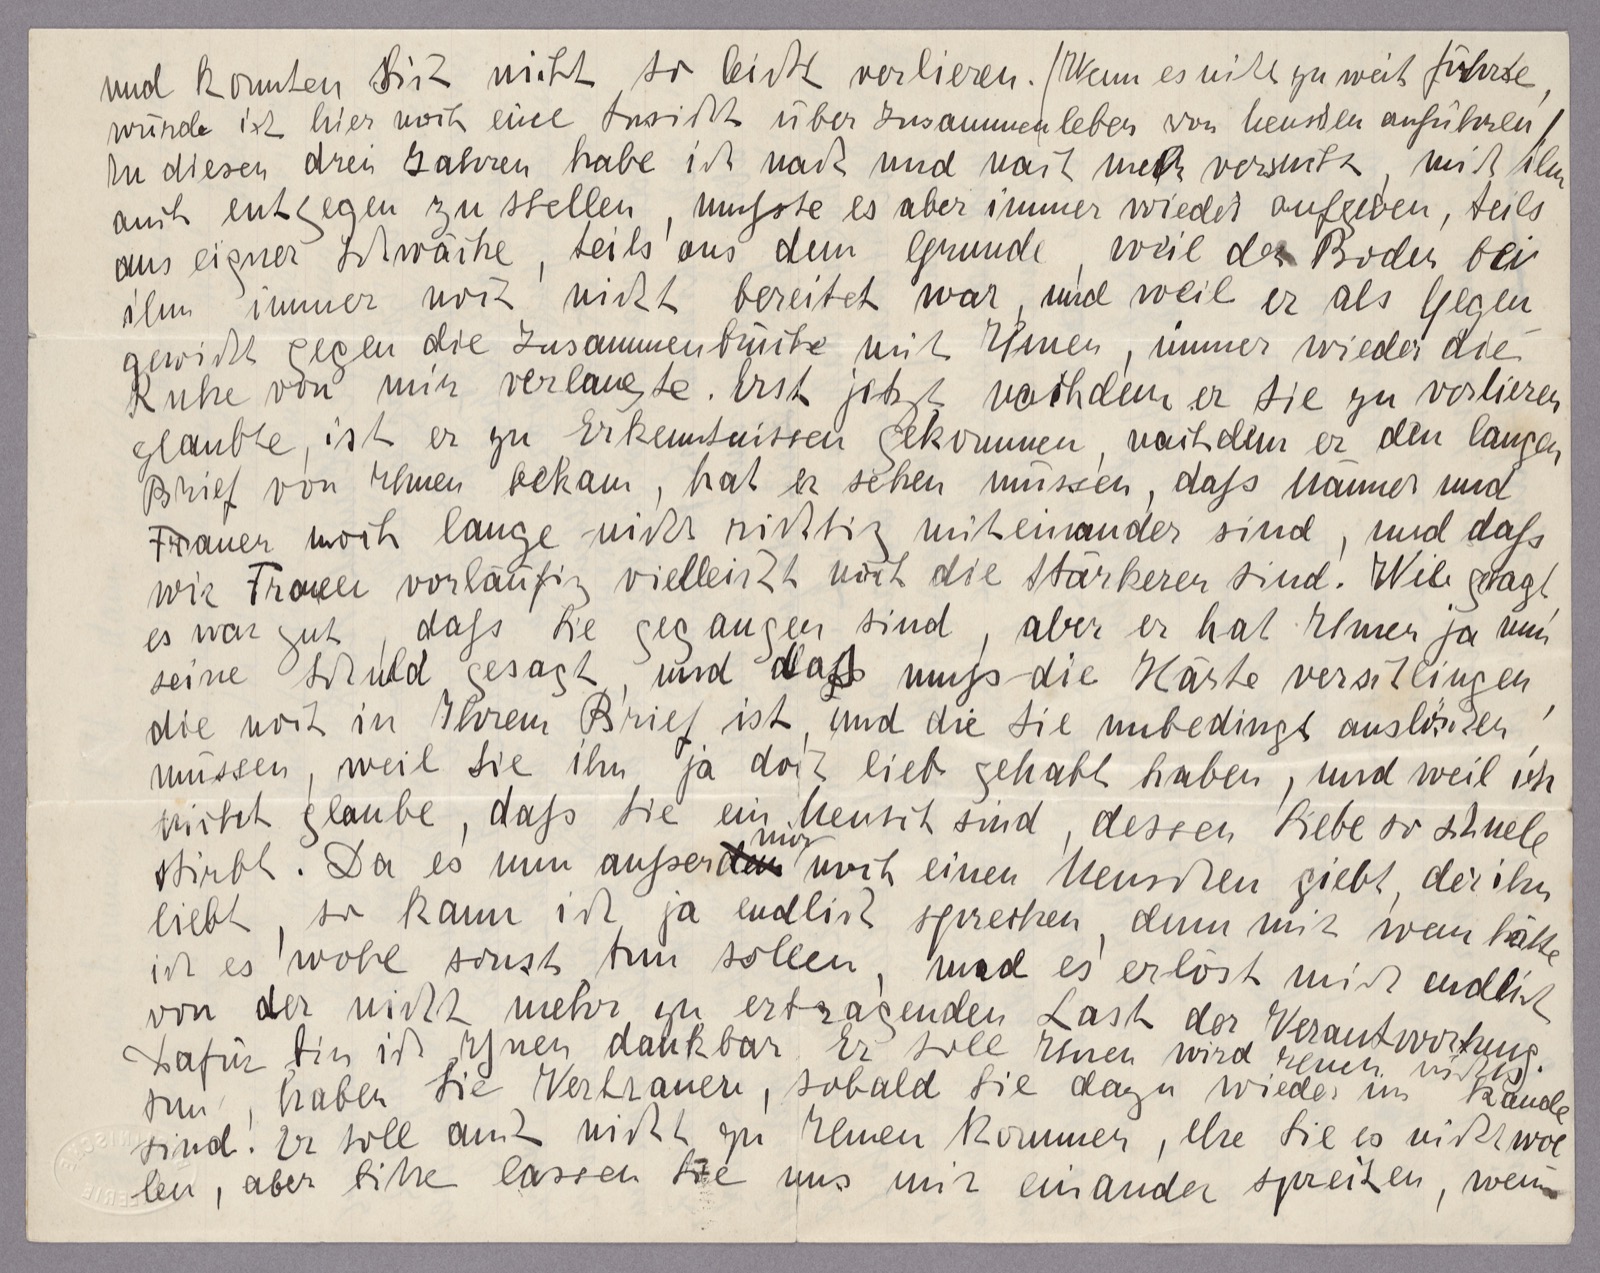 und konnten Sich nicht so leicht verlieren. (Wenn es nicht zu weit führte,
würde ich hier noch eine Ansicht über Zusammenleben von Menschen anführen)
In diesen drei Jahren habe ich nach und nach mehr versucht, mich ihm
auch entgegen zu stellen, mußste es aber immer wieder aufgeben, teils
aus eigner Schwäche, teils aus dem Grunde, weil der Boden bei
ihm immer noch nicht bereitet war, und weil er als Gegen
gewicht gegen die Zusammenbrüche mit Ihnen, immer wieder die
Ruhe von mir verlangte. Erst jetzt nachdem er Sie zu verlieren
glaubte, ist er zu Erkenntnissen gekommen, nachdem er den langen
Brief von Ihnen bekam, hat er sehen müssen, daß Männer und
Frauen noch lange nicht richtig miteinander sind, und daß
wir Frauen vorläufig vielleicht noch die Stärkeren sind. Wie gesagt,
es war gut, daß Sie gegangen sind, aber er hat Ihnen ja nun
seine Schuld gesagt, und daß muß die Härte verschlingen,
die noch in Ihrem Brief ist, und die Sie unbedingt auslöschen
müssen, weil Sie ihn ja doch lieb gehabt haben, und weil ich
nicht glaube, daß Sie ein Mensch sind, dessen Liebe so schnele
stirbt. Da es nun außer mir noch einen Menschen giebt, der ihn
liebt, so kann ich ja endlich sprechen, denn mit wem hätte
ich es wohl sonst tun sollen, und es erlöst mich endlich
von der nicht mehr zu ertragenden Last der Verantwortung.
Dafür bin ich Ihnen dankbar. Er soll Ihnen wird Ihnen nichts
tun, haben Sie Vertrauen, sobald Sie dazu wieder im Stande
sind. Er soll auch nicht zu Ihnen kommen, ehe Sie es nicht wol
len, aber bitte lassen Sie uns mit einander sprechen, wenn